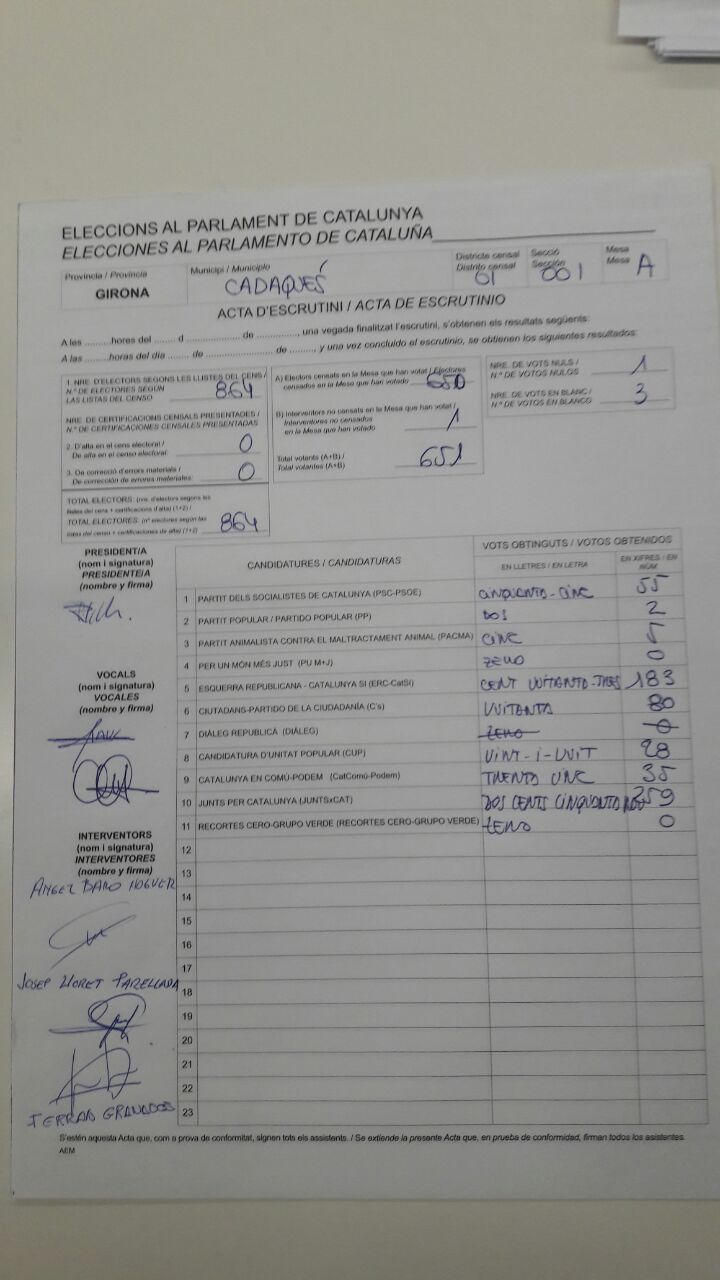 ELECCIONS AL PARLAMENT DE CATALUNYA
ELECCIONES AL PARLAMENTO DE CATALUÑA
Província / Provincia
GIRONA
Municipi / Municipio
CADAQUÉS
Districte censal
Distrito censal
01
Secció
Sección
001
Mesa
Mesa
A
ACTA D'ESCRUTINI / ACTA DE ESCRUTINIO
A les ......... hores del ...... d ..................... de ............, una vegada finalitzat l'escrutini, s'obtenen els resultats següents:
A las ......... horas del día ...... de ..................... de ............, y una vez concluido el escrutinio, se obtienen los siguientes resultados:
1. NRE. D'ELECTORS SEGONS LES LLISTES DEL CENS /
N.º DE ELECTORES SEGÚN
LAS LISTAS DEL CENSO
864
NRE. DE CERTIFICACIONS CENSALS PRESENTADES /
N.º DE CERTIFICACIONES CENSALES PRESENTADAS
2. D'alta en el cens electoral /
De alta en el censo electoral:
0
3. De correcció d'errors materials /
De corrección de errores materiales:
0
TOTAL ELECTORS: (nre. d'electors segons les
llistes del cens + certificacions d'alta) (1+2) /
TOTAL ELECTORES: (nº electores según las
listas del censo + certificaciones de alta) (1+2)
864
A) Electors censats en la Mesa que han votat / Electores
censados en la Mesa que han votado
650
B) Interventors no censats en la Mesa que han votat /
Interventores no censados
en la Mesa que han votado
1
Total votants (A+B) /
Total votantes (A+B)
651
NRE. DE VOTS NULS /
N.º DE VOTOS NULOS
1
NRE. DE VOTS EN BLANC /
N.º DE VOTOS EN BLANCO
3
PRESIDENT/A
(nom i signatura)
PRESIDENTE/A
(nombre y firma)
VOCALS
(nom i signatura)
VOCALES
(nombre y firma)
INTERVENTORS
(nom i signatura)
INTERVENTORES
(nombre y firma)
ÀNGEL BARÓ NOGUER
JOSEP LLORET PARELLADA
GRANADOS
CANDIDATURES / CANDIDATURAS
VOTS OBTINGUTS / VOTOS OBTENIDOS
EN LLETRES / EN LETRA
EN XIFRES / EN NÚM
1 PARTIT DELS SOCIALISTES DE CATALUNYA (PSC-PSOE) CINQUANTA-CINC 55
2 PARTIT POPULAR / PARTIDO POPULAR (PP) DOS 2
3 PARTIT ANIMALISTA CONTRA EL MALTRACTAMENT ANIMAL (PACMA) CINC 5
4 PER UN MÓN MÉS JUST (PU M+J) ZERO 0
5 ESQUERRA REPUBLICANA - CATALUNYA SI (ERC-CatSí) CENT VUITANTA-TRES 183
6 CIUTADANS-PARTIDO DE LA CIUDADANÍA (C's) VUITANTA 80
7 DIÀLEG REPUBLICÀ (DIÀLEG) ZERO 0
8 CANDIDATURA D'UNITAT POPULAR (CUP) VINT-I-VUIT 28
9 CATALUNYA EN COMÚ-PODEM (CatComú-Podem) TRENTA CINC 35
10 JUNTS PER CATALUNYA (JUNTSxCAT) DOS CENTS CINQUANTA NOU 259
11 RECORTES CERO-GRUPO VERDE (RECORTES CERO-GRUPO VERDE) ZERO 0
12
13
14
15
16
17
18
19
20
21
22
23
S'estén aquesta Acta que, com a prova de conformitat, signen tots els assistents. / Se extiende la presente Acta que, en prueba de conformidad, firman todos los asistentes.
AEM